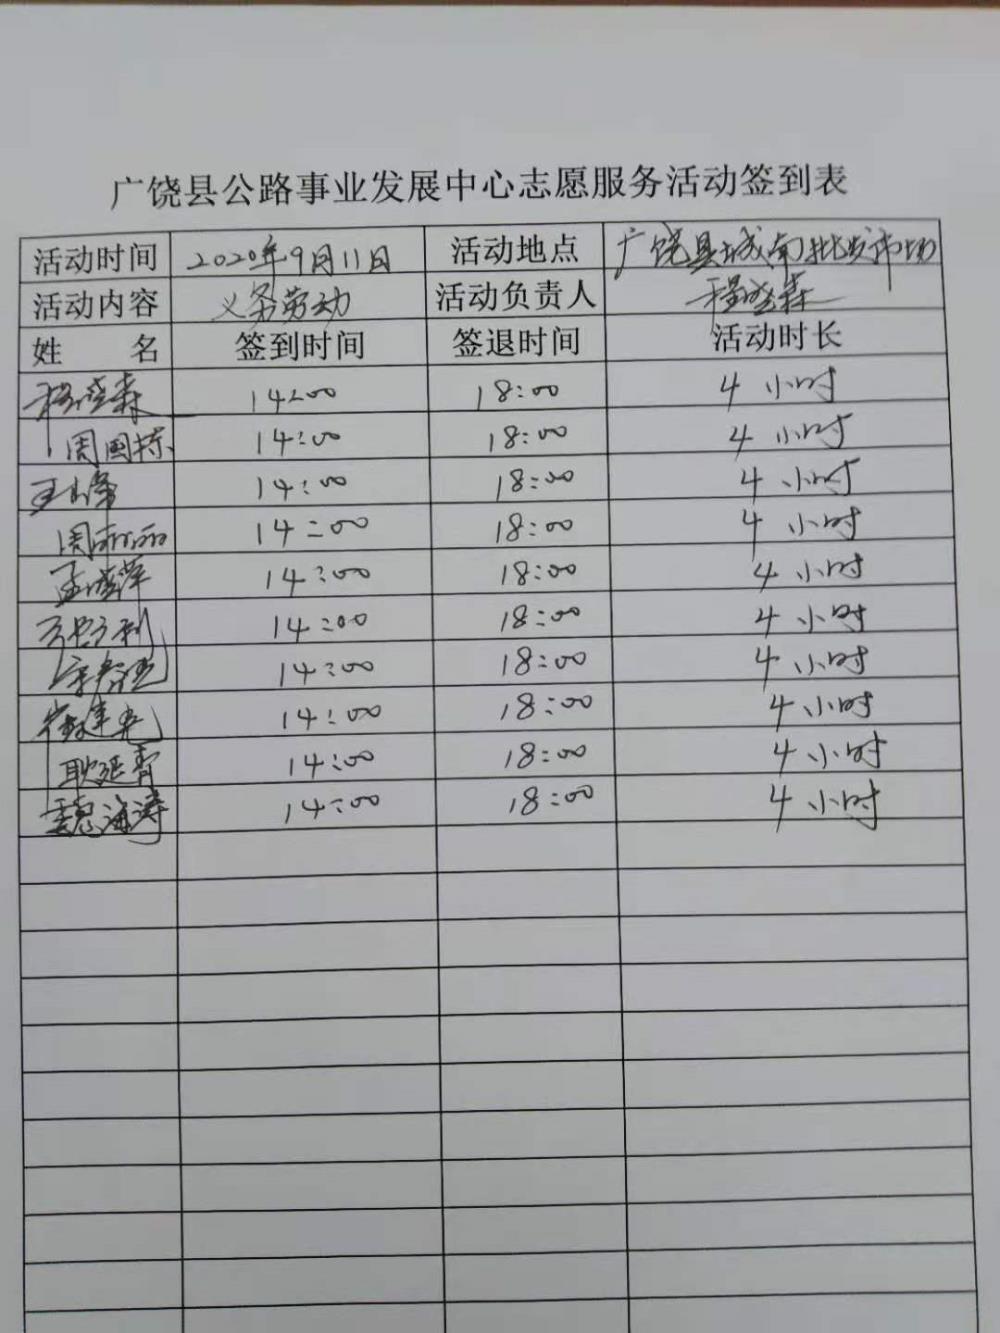 广饶县公路事业发展中心志愿服务活动签到表
活动时间 2020年9月11日 活动地点 广饶县城南批发市场
活动内容 义务劳动 活动负责人
姓名 签到时间 签退时间 活动时长
14:00 18:00 4小时
周国栋 14:00 18:00 4小时
14:00 18:00 4小时
周丽丽 14:00 18:00 4小时
孟晓萍 14:00 18:00 4小时
14:00 18:00 4小时
14:00 18:00 4小时
14:00 18:00 4小时
耿延青 14:00 18:00 4小时
魏海涛 14:00 18:00 4小时